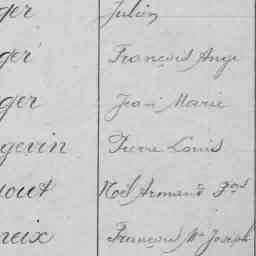 ger Julien
ger François Ange
ger Jean Marie
gevin Pierre Louis
Noel Armand Fois
neix François Me Joseph